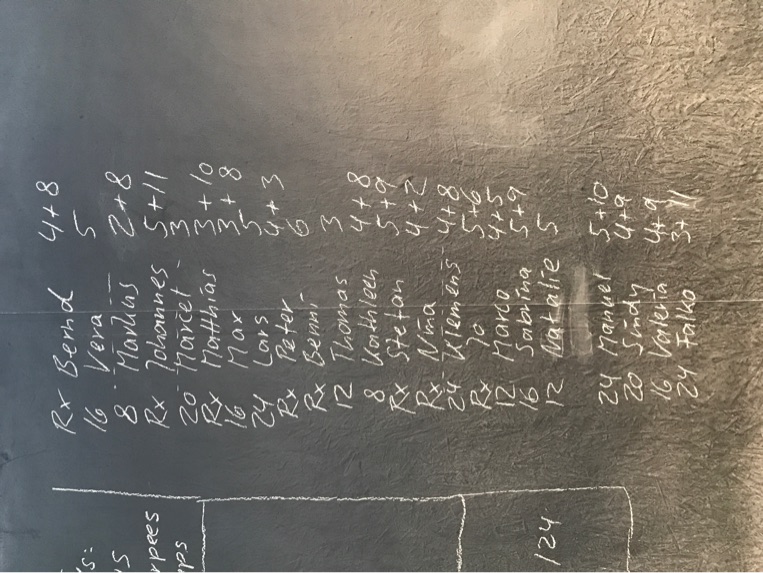 s:
us
rpees
ps
124
Rx Bernd 4+8
16 Vera 5
8 Markus 2+8
Rx Johannes 5+11
20 Marcel 3
Rx Matthias 3+10
16 Max 3+8
24 Lars 5
Rx Peter 4+3
Rx Benni 6
12 Thomas 3
8 Kathleen 4+8
Rx Stefan 5+9
Rx Nina 4+2
24 Klemens 4+8
Rx Jo 5+6
12 Marco 4+5
16 Sabrina 5+9
12 Natalie 5
24 Manuel 5+10
20 Sindy 4+9
16 Valeria 4+9
24 Falko 3+11